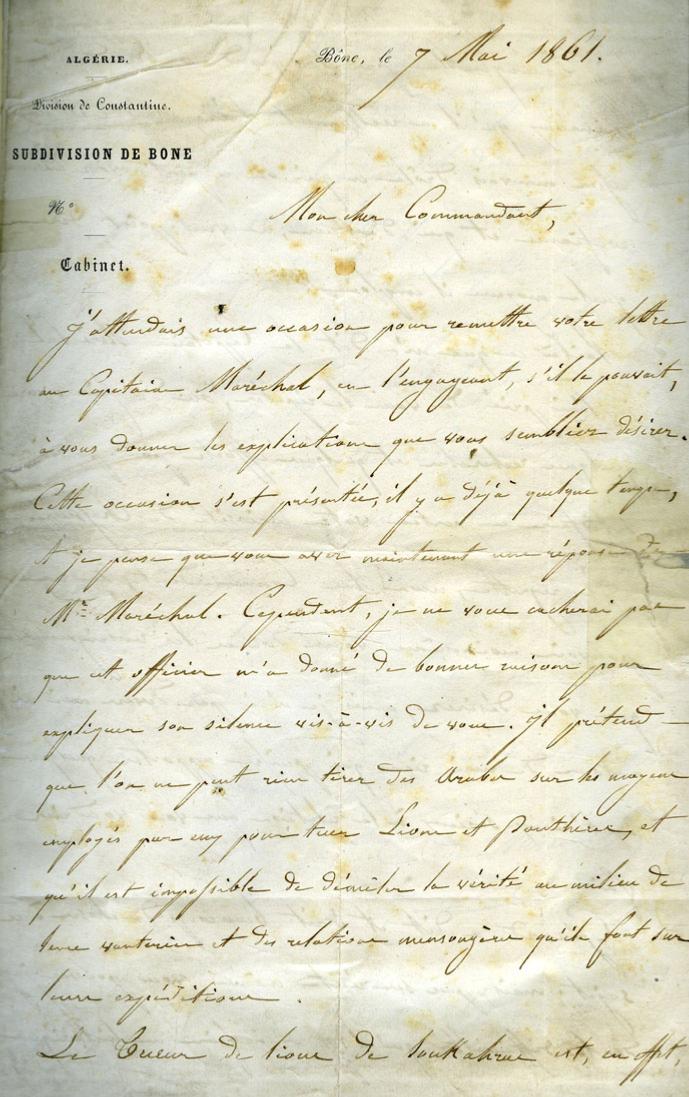 ALGÉRIE.
Bône, le 7 Mai 1861.
Division de Constantine.
SUBDIVISION DE BONE
N°
Cabinet.
Mon cher Commandant,
J'attendais une occasion pour remettre votre lettre
au Capitaine Maréchal, en l'engageant, s'il le pouvait,
à vous donner les explications que vous sembliez désirer.
Cette occasion s'est présentée, il y a déjà quelque temps,
et je pense que vous avez maintenant une réponse de
Mr Maréchal. Cependant, je ne vous cacherai pas
que cet officier m'a donné de bonnes raisons pour
expliquer son silence vis-à-vis de vous. Il prétend
que l'on ne peut rien tirer des Arabes sur les moyens
employés par eux pour tuer Lions et Panthères, et
qu'il est impossible de démêler la vérité au milieu de
leurs vanteries et des relations mensongères qu'ils font sur
leurs expéditions.
Le Tueur de lions de Soukahras est, en effet,